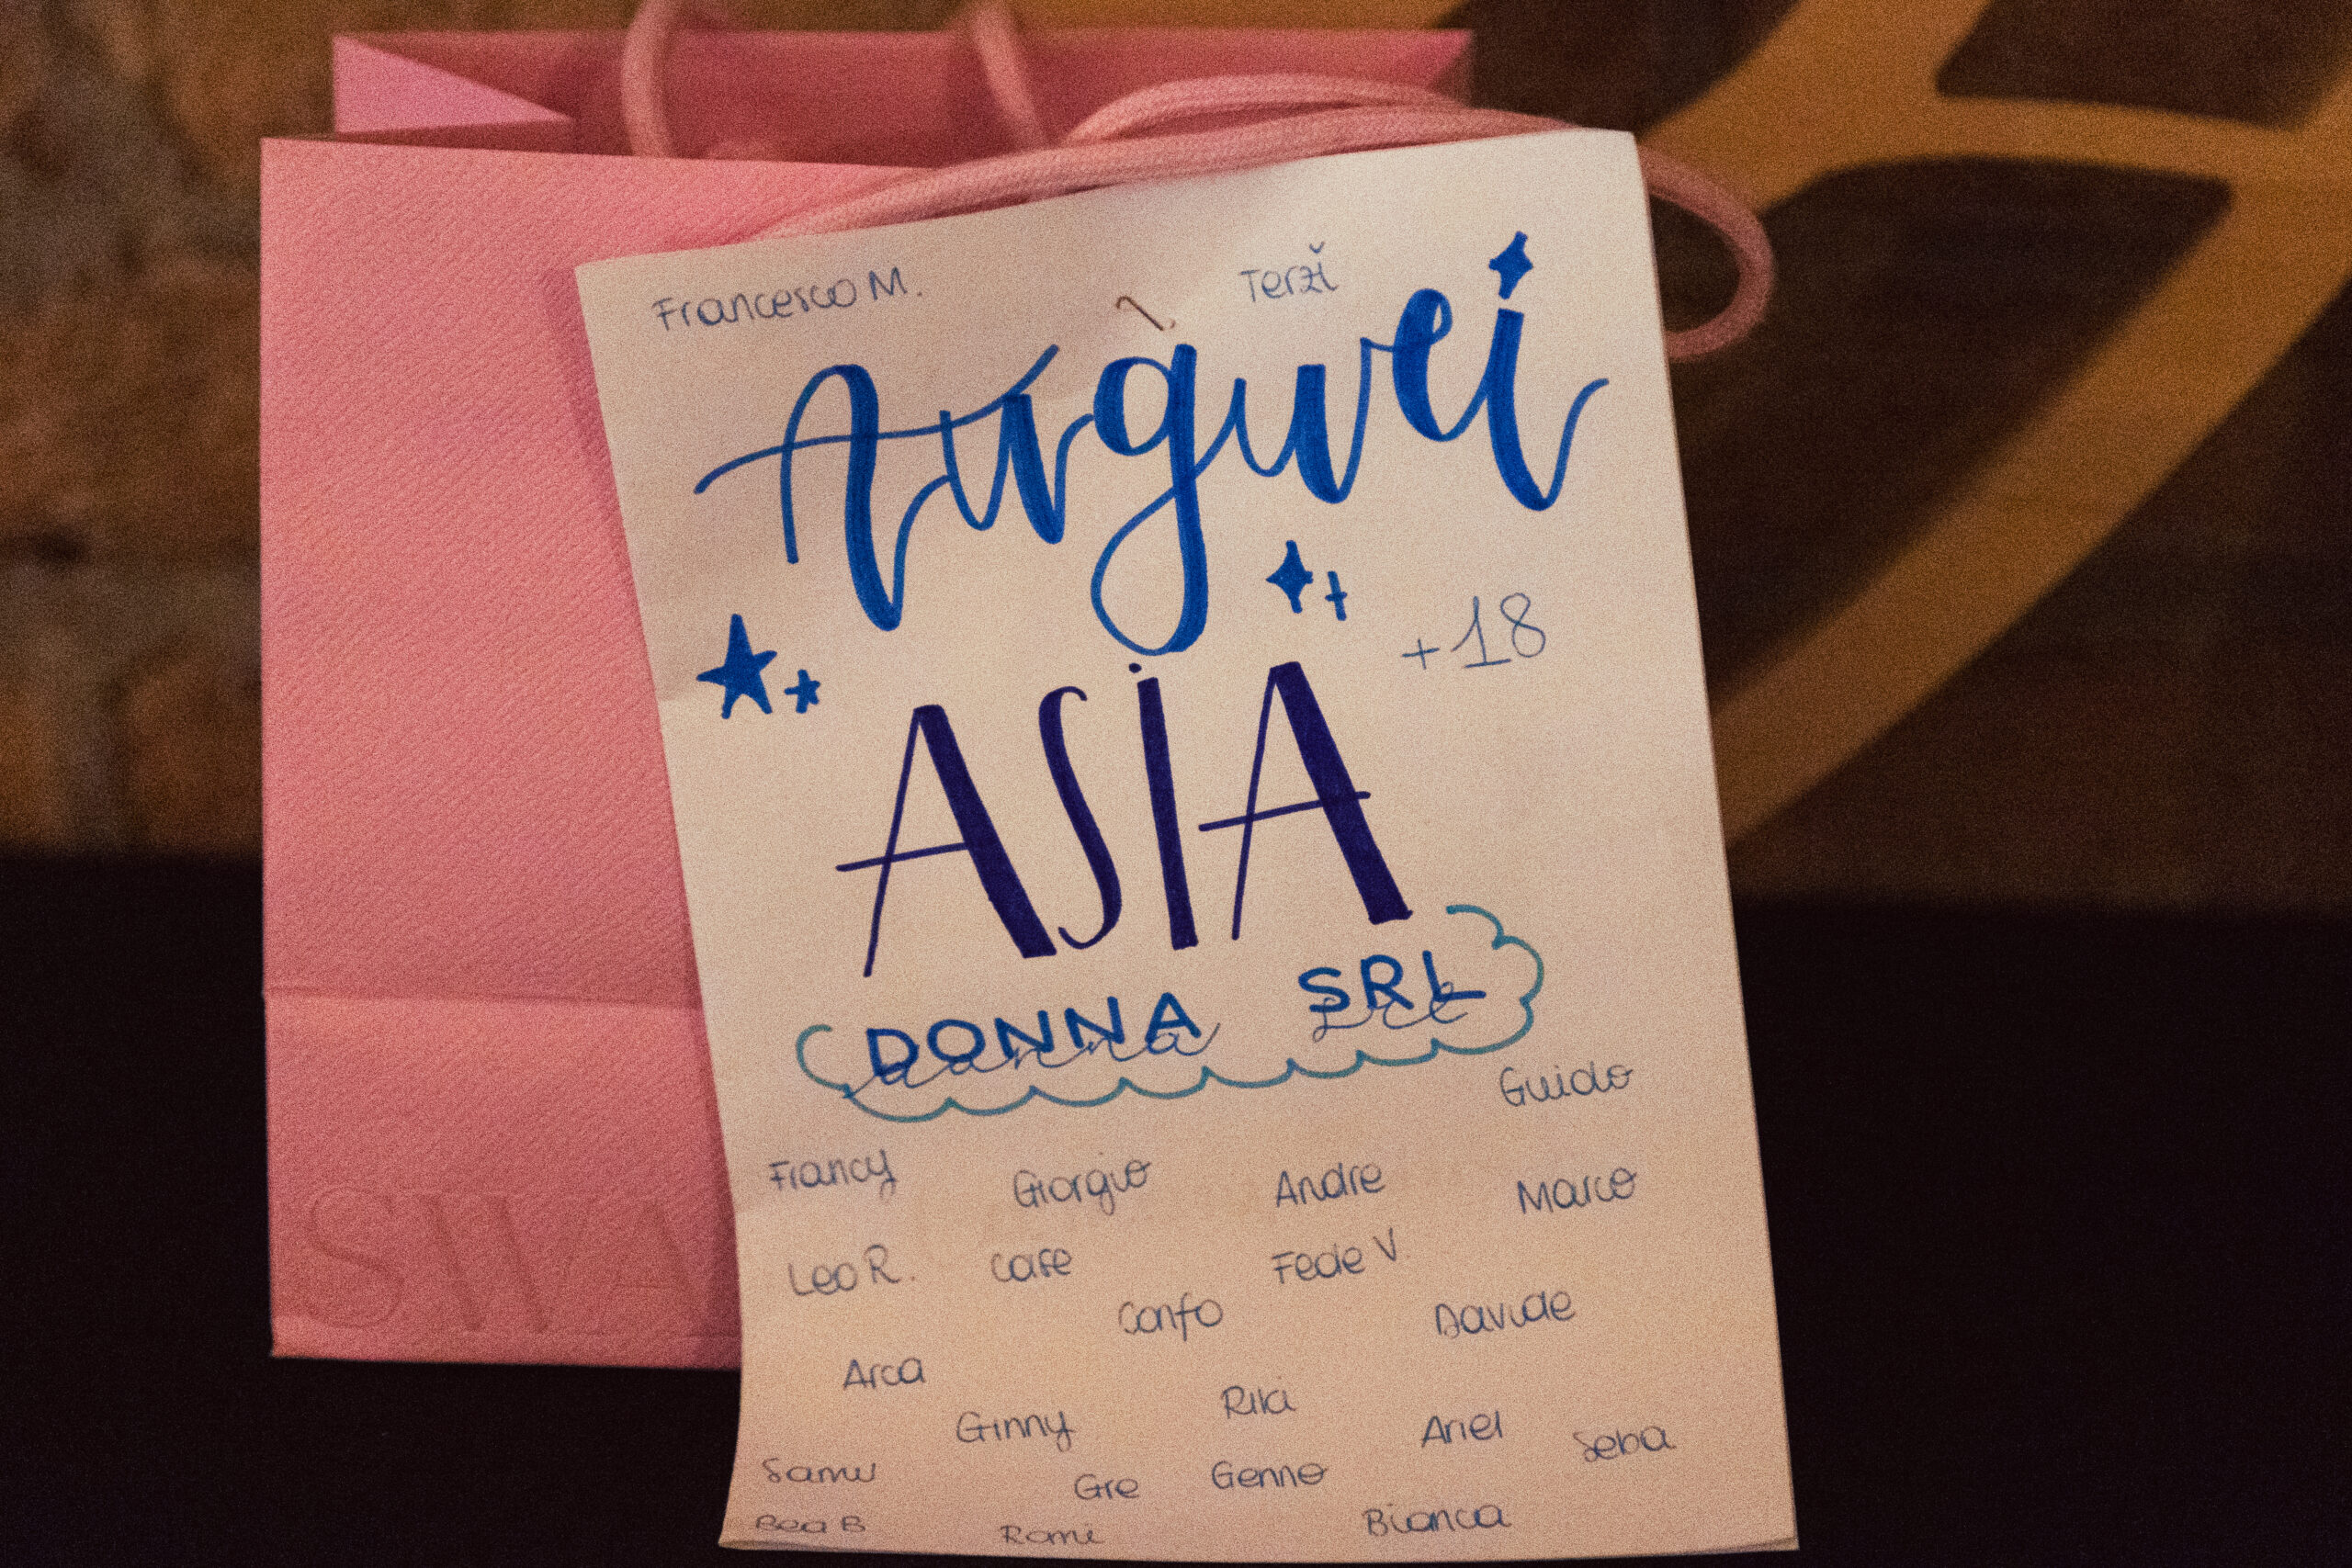 Francesco M. Terzi
Auguri
+18
ASiA
DONNA SRL
Guido
Francy Giorgio Andre Marco
Leo R. Cafe Fede V.
Confo Davide
Arca
Ginny Riki Ariel Seba
Samu Gre Genno
Bea B Romi Bianca
SWA